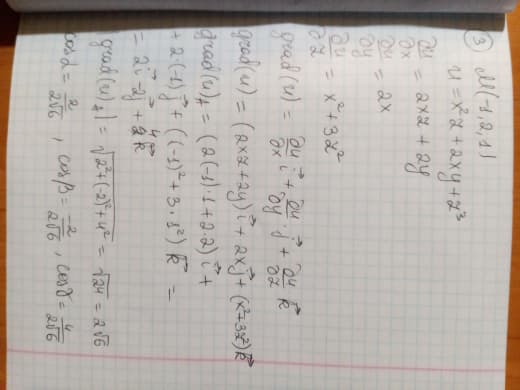 3 M(-1,2,1)
u = x²z + 2xy + z³
∂u/∂x = 2xz + 2y
∂u/∂y = 2x
∂u/∂z = x² + 3z²
grad(u) = ∂u/∂x i⃗ + ∂u/∂y · j⃗ + ∂u/∂z k⃗
grad(u) = (2xz + 2y) i⃗ + 2x j⃗ + (x² + 3z²) k⃗
grad(u)_A = (2(-1)·1 + 2·2) i⃗ +
+ 2·(-1) j⃗ + ((-1)² + 3·1²) k⃗ =
= 2i⃗ - 2j⃗ + 4k⃗
|grad(u)_A| = √(2² + (-2)² + 4²) = √24 = 2√6
cos α = 2/(2√6) , cos β = -2/(2√6) , cos γ = 4/(2√6)